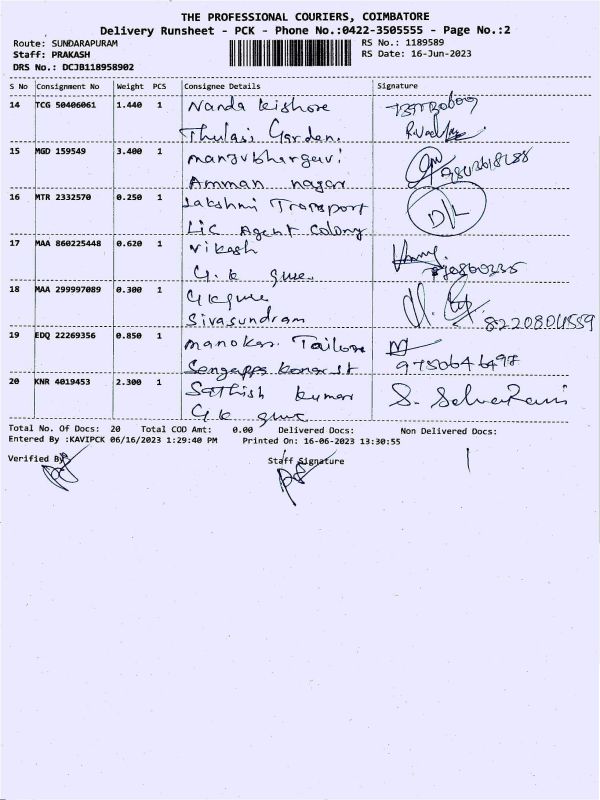 THE PROFESSIONAL COURIERS, COIMBATORE
Delivery Runsheet - PCK - Phone No.:0422-3505555 - Page No.:2
Route: SUNDARAPURAM RS No.: 1189589
Staff: PRAKASH RS Date: 16-Jun-2023
DRS No.: DCJB118958902
S No Consignment No Weight PCS Consignee Details Signature
14 TCG 50406061 1.440 1 Nanda kishore
Thulasi Garden.
15 MGD 159549 3.400 1 manjubhargavi
Amman nagar
16 MTR 2332570 0.250 1 Lakshmi Transport D/L
Lic Agent Colony
17 MAA 860225448 0.620 1 Vikash
G.k
18 MAA 299997089 0.300 1
Sivasundram 8220804559
19 EDQ 22269356 0.850 1 manokar Tailor
9750646497
20 KNR 4019453 2.300 1 Sathish kumar S. Selvarani
G.k
Total No. Of Docs: 20 Total COD Amt: 0.00 Delivered Docs: Non Delivered Docs:
Entered By :KAVIPCK 06/16/2023 1:29:40 PM Printed On: 16-06-2023 13:30:55
Verified By Staff Signature